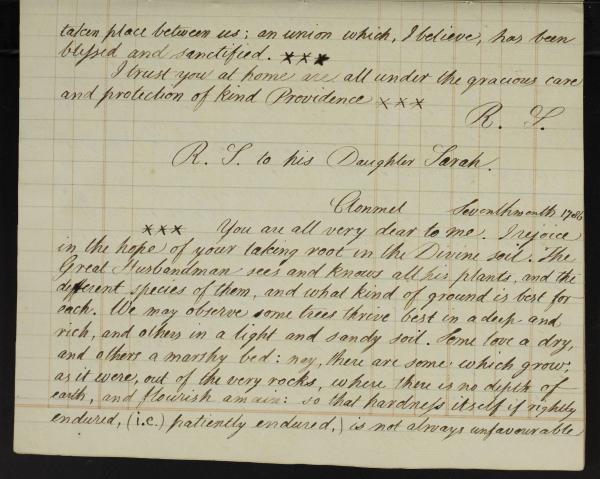 taken place between us; an union which, I believe, has been
blessed and sanctified. xxx
I trust you at home are all under the gracious care
and protection of kind Providence xxx
R. S.
R. S. to his Daughter Sarah.
Clonmel Seventhmonth 1786
xxx You are all very dear to me. I rejoice
in the hope of your taking root in the Divine soil. The
Great Husbandman sees and knows all his plants, and the
different species of them, and what kind of ground is best for
each. We may observe some trees thrive best in a deep and
rich, and others in a light and sandy soil. Some love a dry,
and others a marshy bed: nay, there are some which grow,
as it were, out of the very rocks, where there is no depth of
earth, and flourish amain: so that hardness itself if rightly
endured, (i.e.) patiently endured,) is not always unfavourable